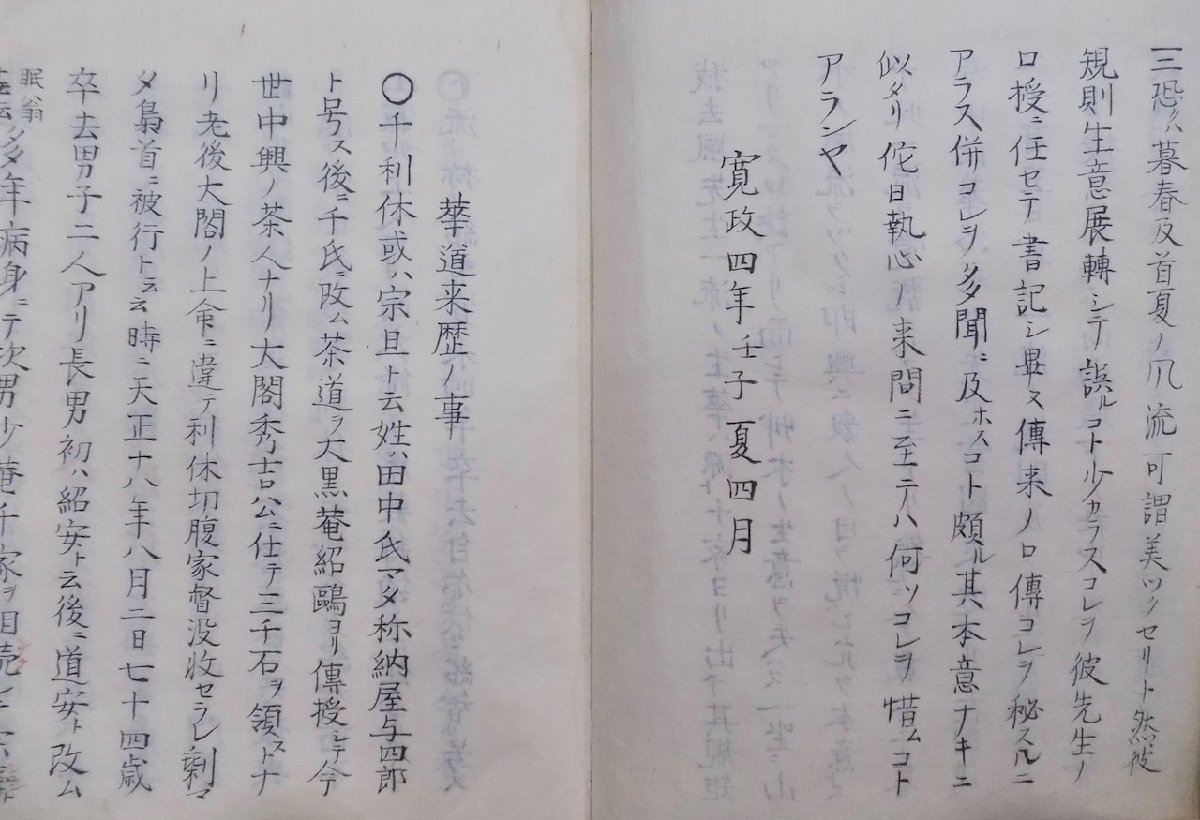 三恐ハ暮春及首夏ノ爪流可謂美ツクセリト然彼
規則生意展轉シテ誤ルコト少カラスコレヲ彼先生ノ
口授ニ任セテ書記シ畢ヌ傳来ノ口傳コレヲ秘スルニ
アラス併コレヲ多聞ニ及ホスコト頗ル其本意ナキニ
似タリ佗日執心ノ来問ニ至テハ何ソコレヲ惜ムコト
アランヤ
寛政四年壬子夏四月
華道来歴ノ事
〇千利休或ハ宗旦ト云姓ハ田中氏マタ称納屋与四郎
ト号ス後ニ千氏ニ改ム茶道ヲ大黒菴紹鷗ヨリ傳授シテ今
世中興ノ茶人ナリ大閤秀吉公ニ仕テ三千石ヲ領ストナ
リ老後大閤ノ上命ニ違テ利休切腹家督没收セラレ剰マ
タ梟首ニ被行ト云時ニ天正十八年八月二日七十四歳
卒去男子二人アリ長男初ハ紹安ト云後ニ道安ト改ム
眠翁
ト云多年病身ニテ次男少菴千家ヲ相続シテ宗